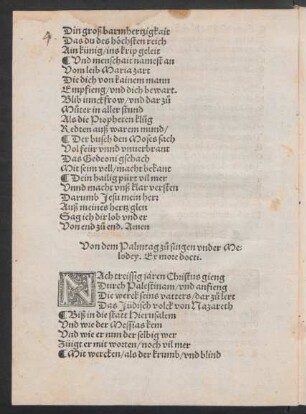 4
Din groß barmhertzigkait
Das du des höchsten reich
Ain künig/ ins krip geleit
¶ Vnd menschait namest an
Vom leib Maria zart
Die dich von kainem mann
Empfieng/ vnd dich bewart.
Blib junckfrow/ vnd dar zů
Můter in aller stund
Als die Propheten klůg
Redten auß warem mund/
¶ Der busch den Moses sach
Vol feür vnnd vnuerbrant
Das Gedeoni gschach
Mit seim vell/ macht bekant
¶ Dein hailig pürt vil mer
Vnnd macht vnß klar versten
Darumb Jesu mein herr
Auß meines hertz glen
Sag ich dir lob vnd er
Von end zů end. Amen
Von dem Palmtag zů singen vnder Me-
lodey. Ex more docti.
NAch treissig jaren Christus gieng
Durch Palestinam/ vnd anfieng
Die werck seins vatters/ dar zů lert
Das Jüdisch volck von Nazareth
¶ Biß in die statt Hierusalem
Vnd wie der Messias kem
Vnd wie er nun der selbig wer
Zůigt er mit worten/ noch vil mer
¶ Mit wercken/ als der krumb/ vnd blind